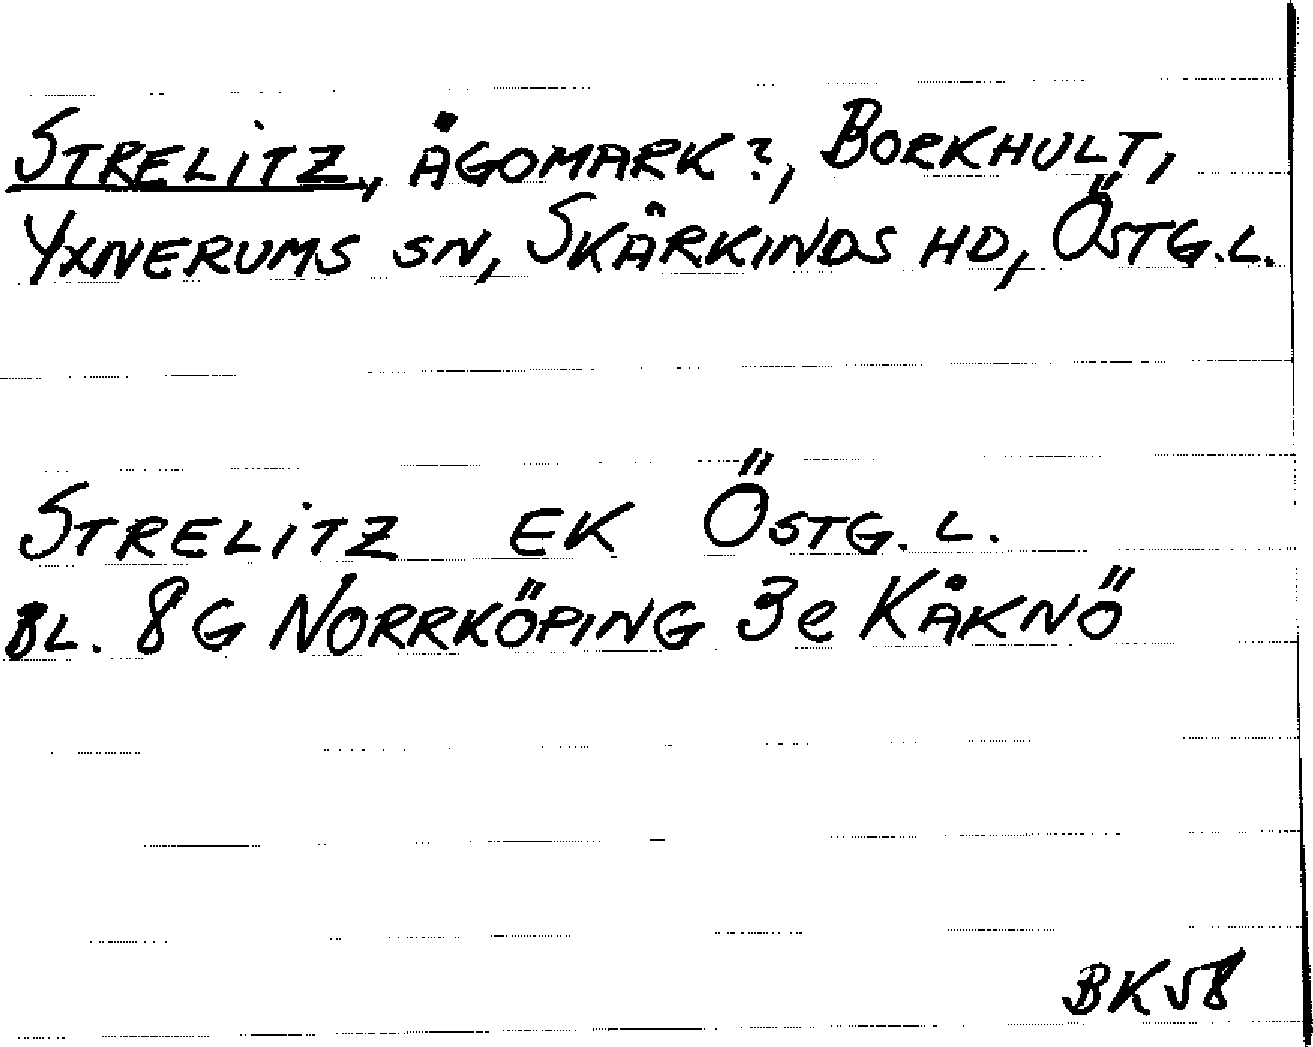 STRELITZ, ÅGOMARK?, BORKHULT,
YXNERUMS SN, SKÄRKINDS HD, ÖSTG.L.
STRELITZ EK ÖSTG. L.
BL. 8G NORRKÖPING 3e KÅKNÖ